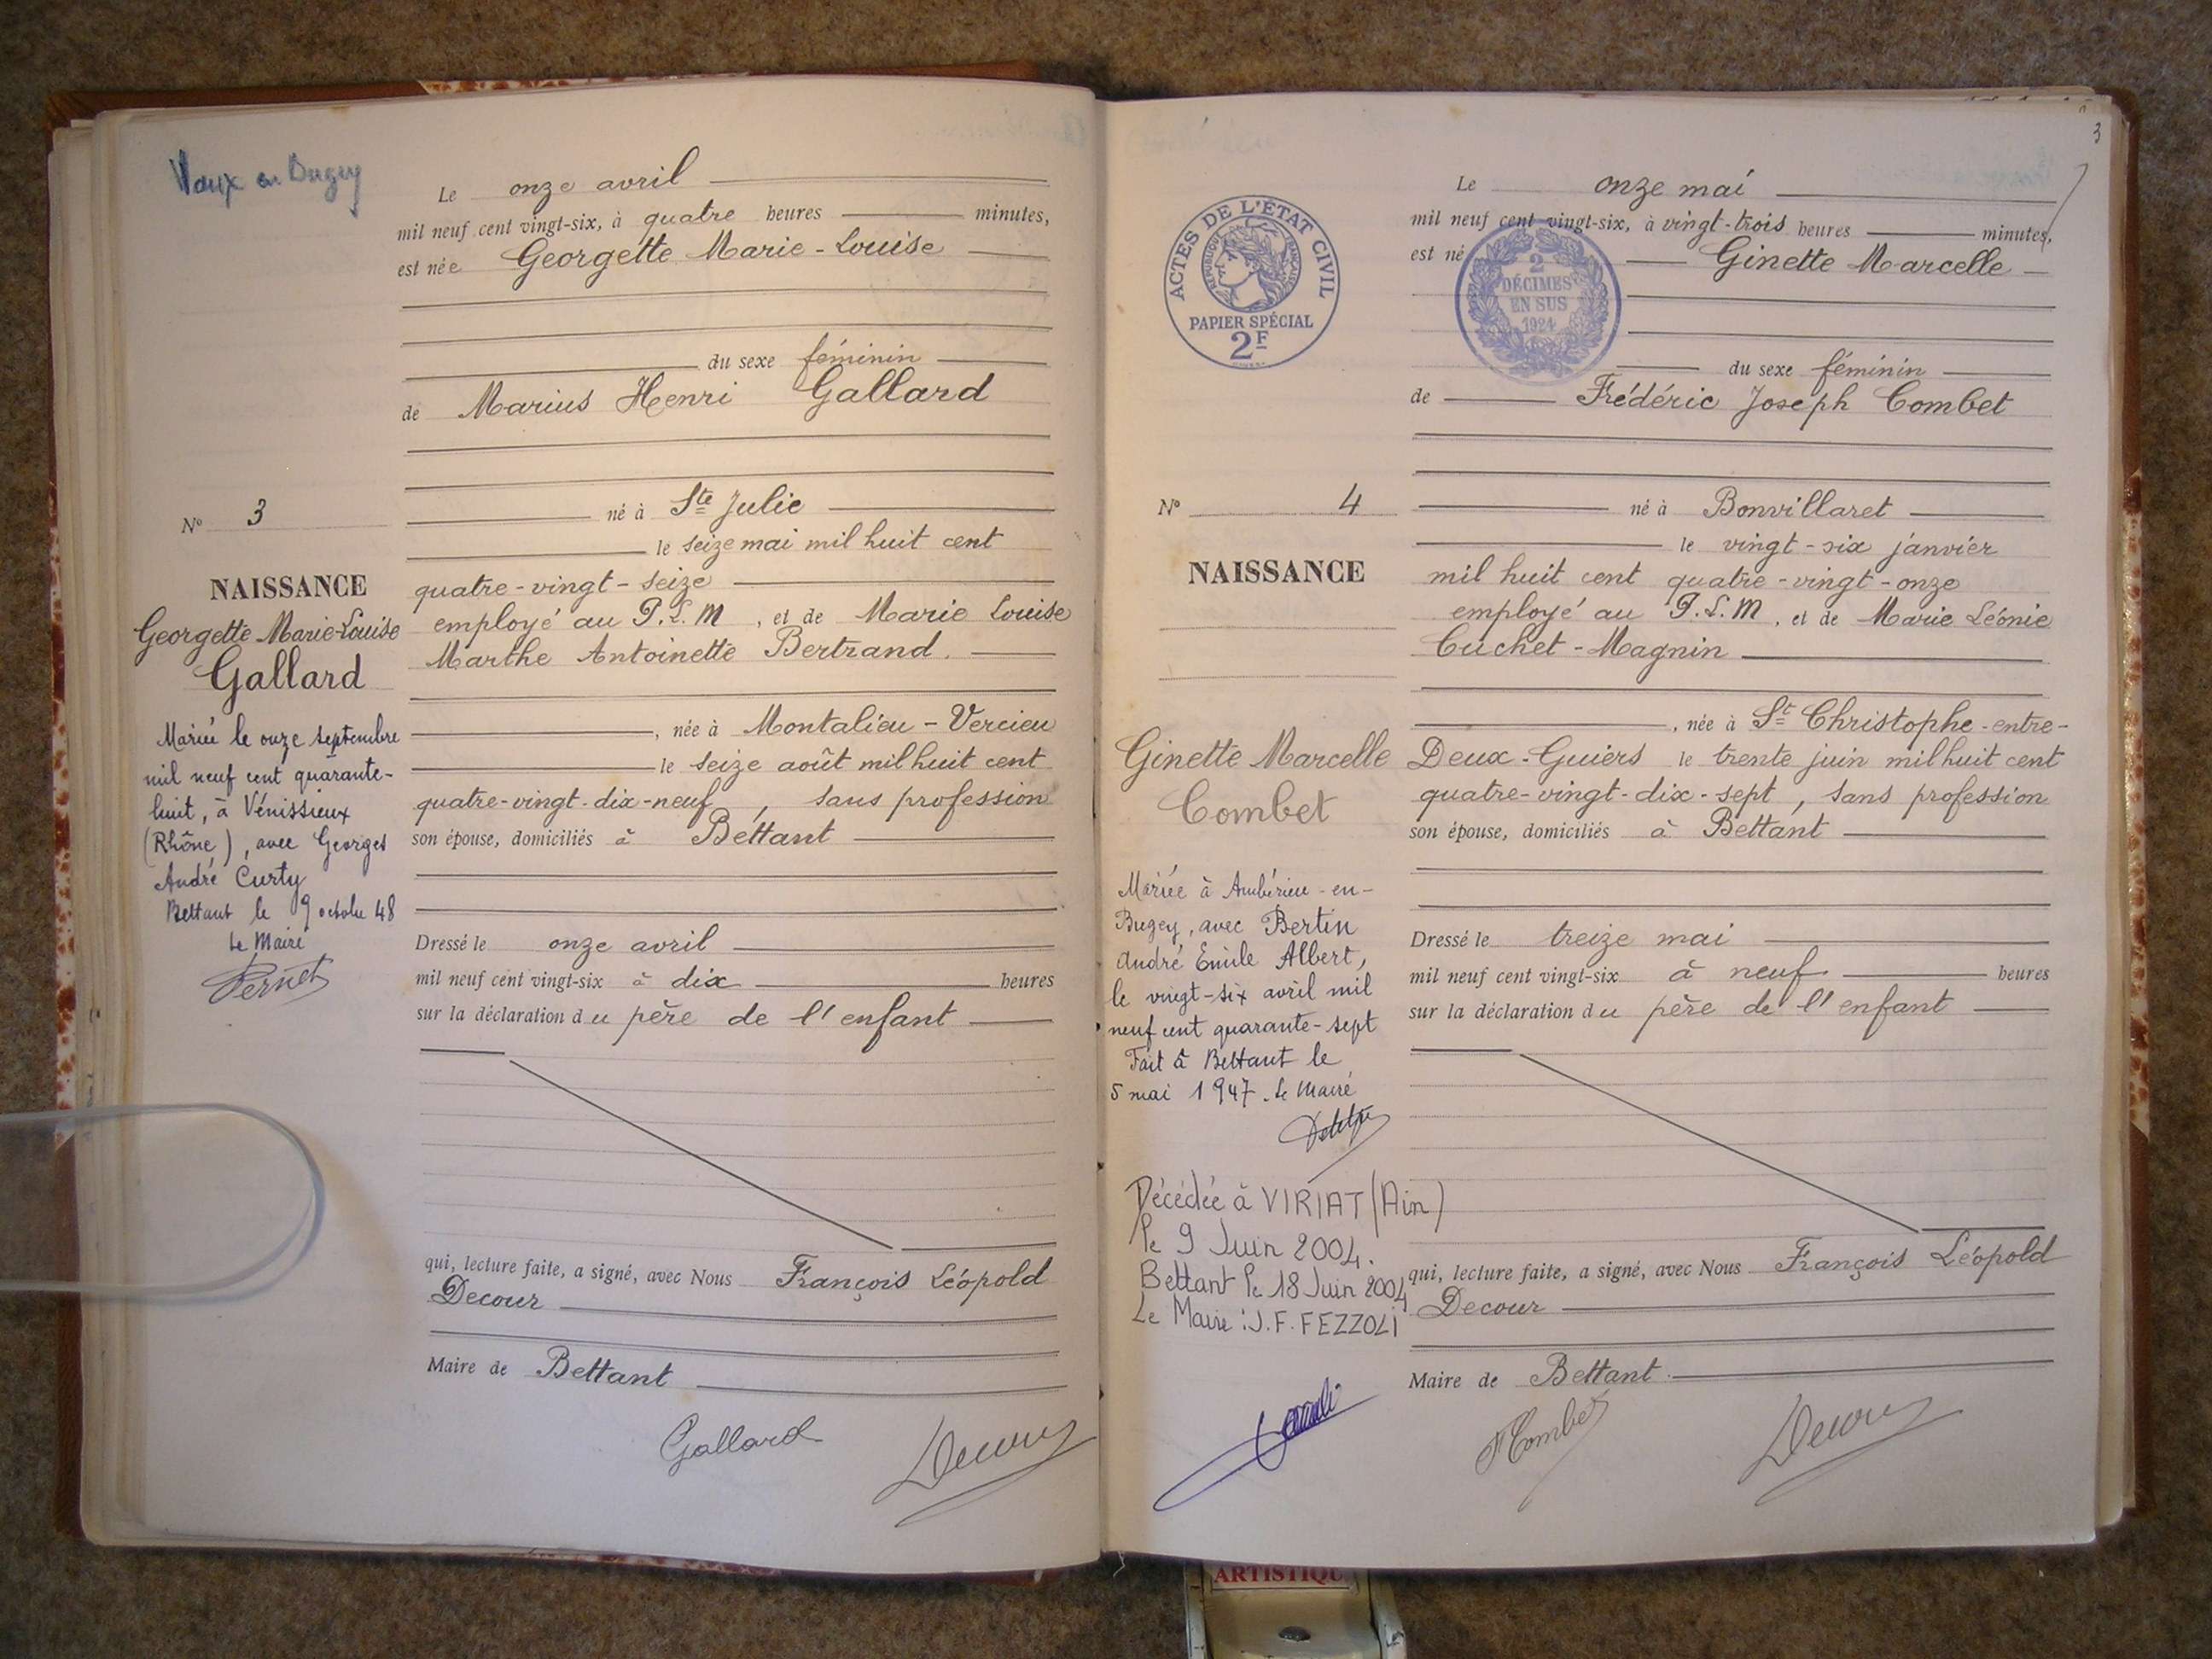 Vaux en Bugey
Le onze avril
mil neuf cent vingt-six, à quatre heures minutes,
est née Georgette Marie-Louise
du sexe féminin
de Marius Henri Gallard
né à Ste Julie
le seize mai mil huit cent
quatre-vingt-seize
employé au P.L.M, et de Marie Louise
Marthe Antoinette Bertrand.
, née à Montalieu-Vercieu
le seize août mil huit cent
quatre-vingt-dix-neuf, sans profession
son épouse, domiciliés à Bettant
Dressé le onze avril
mil neuf cent vingt-six à dix heures
sur la déclaration du père de l'enfant
qui, lecture faite, a signé, avec Nous François Léopold
Decour
Maire de Bettant
Gallard
Decour
No 3
NAISSANCE
Georgette Marie-Louise
Gallard
Mariée le onze septembre
mil neuf cent quarante-
huit, à Vénissieux
(Rhône), avec Georges
André Curty
Bettant le 9 octobre 48
Le Maire
Pernet
3
ACTES DE L'ÉTAT CIVIL
RÉPUBLIQUE FRANÇAISE
PAPIER SPÉCIAL
2F
2
DÉCIMES
EN SUS
1924
Le onze mai
mil neuf cent vingt-six, à vingt-trois heures minutes,
est né Ginette Marcelle
du sexe féminin
de Frédéric Joseph Combet
né à Bonvillaret
le vingt-six janvier
mil huit cent quatre-vingt-onze
employé au P.L.M, et de Marie Léonie
Cuchet-Magnin
, née à St Christophe-entre-
Deux-Guiers le trente juin mil huit cent
quatre-vingt-dix-sept, sans profession
son épouse, domiciliés à Bettant
Dressé le treize mai
mil neuf cent vingt-six à neuf heures
sur la déclaration du père de l'enfant
qui, lecture faite, a signé, avec Nous François Léopold
Decour
Maire de Bettant
FCombet
Decour
No 4
NAISSANCE
Ginette Marcelle
Combet
Mariée à Ambérieu-en-
Bugey, avec Bertin
André Emile Albert,
le vingt-six avril mil
neuf cent quarante-sept
Fait à Bettant le
5 mai 1947. Le Maire
Décédée à VIRIAT (Ain)
le 9 Juin 2004.
Bettant le 18 Juin 2004
Le Maire : J.F. FEZZOLI
ARTISTIQU